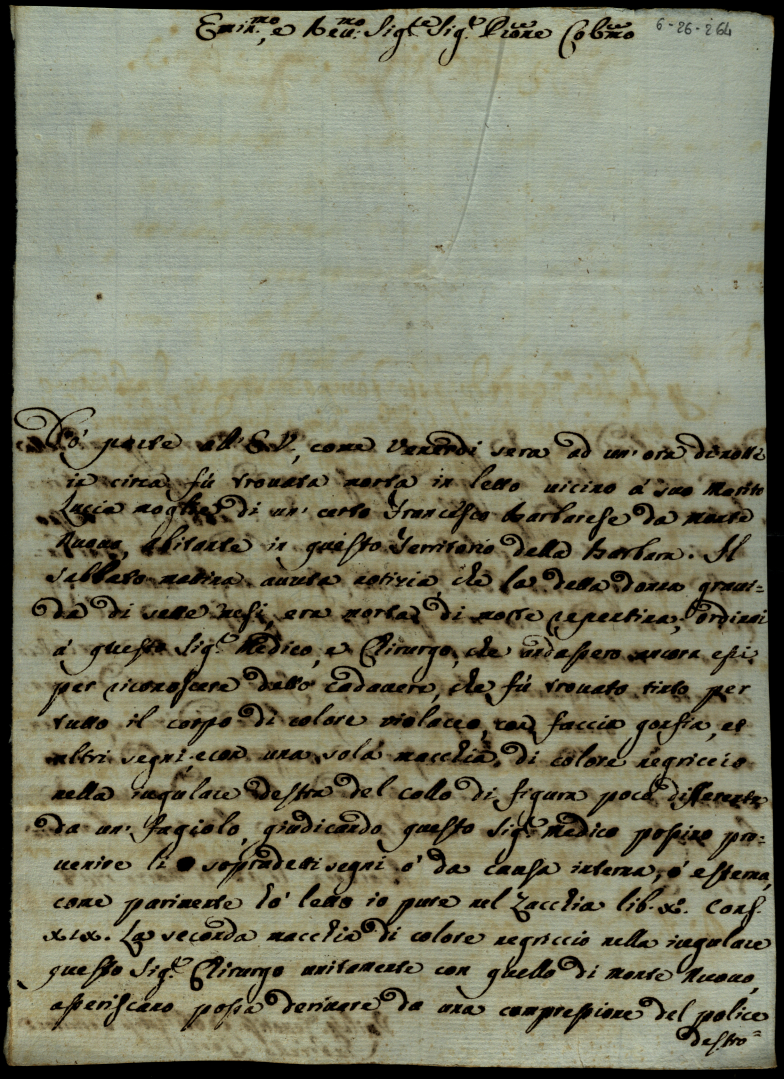 Emin.mo, e Rev.mo Sig.re Sig.r Prone Colmo
6-26-264
Dò parte all' E.V., come Venerdi sera ad un' ora di notte
in circa fù trovata morta in letto vicino à suo Marito
Lucia moglie di un' certo Francesco Barbarese da monte
Nuovo, abitante in questo Territorio della Barbara. Il
sabbato matina avuta notizia che la detta donna gravi=
da di sette mesi, era morta di morte repentina, ordinai
à questo Sig.r Medico, e Cirurgo, che andassero ancora essi
per riconoscere detto cadavere, che fù trovato tinto per
tutto il corpo di colore violaceo, con faccia gonfia, et
altri segni, e con una sola macchia, di colore negriccio
nella iugulare destra del collo di figura poco differente
da un' fagiolo, giudicando questo Sig.r Medico possino pro=
venire li sopradetti segni ò da causa interna, ò esterna,
come parimente hò letto io pure nel Zacchia lib. x.o Cons.
xix. La seconda macchia di colore negriccio nella iugulare
questo Sig.r Cirurgo unitamente con quello di Monte Nuovo,
asseriscano possa derivare da una compressione del police
destro=